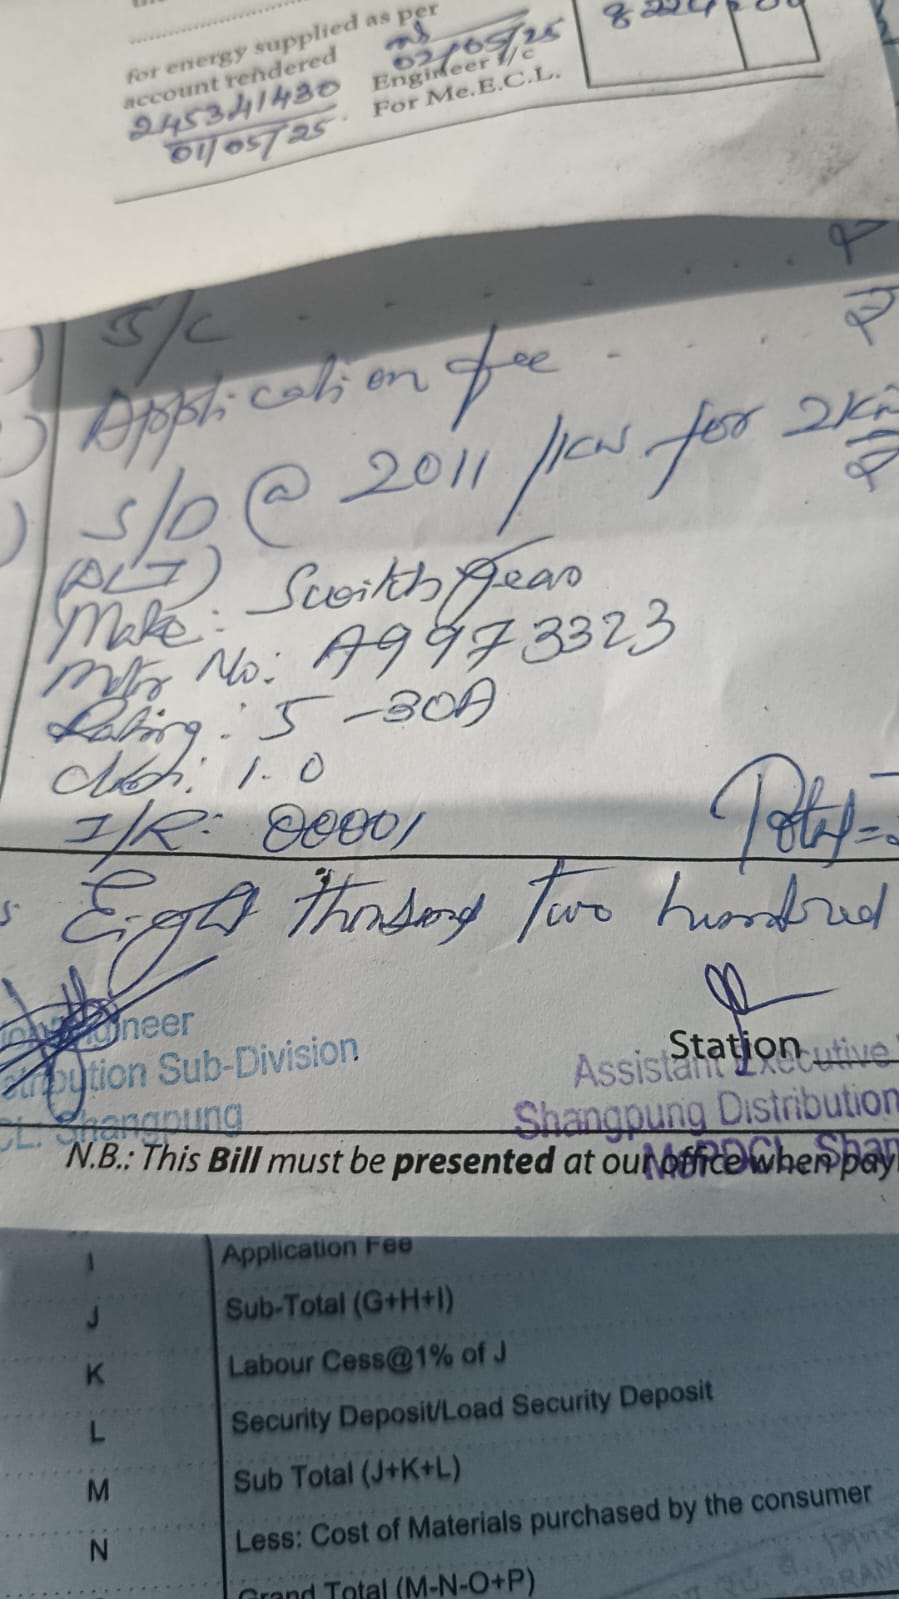 for energy supplied as per
account rendered
245341430
01/05/25
02/05/25
Engineer I/c
For Me.E.C.L.
S/C . . . . . . ₹
Application fee . . . . ₹
S/D @ 2011 /KW for 2KW
₹
Make: Switch Gear
Mtr No: A9973323
Rating: 5 -30A
Class: 1.0
I/R: 00001
Total =
Eight thousand Two hundred
Engineer
Distribution Sub-Division
Shangpung
Station
Assistant Executive
Shangpung Distribution
MePDCL, Shan
N.B.: This Bill must be presented at our office when pay
I Application Fee
J Sub-Total (G+H+I)
K Labour Cess@1% of J
L Security Deposit/Load Security Deposit
M Sub Total (J+K+L)
N Less: Cost of Materials purchased by the consumer
Grand Total (M-N-O+P)